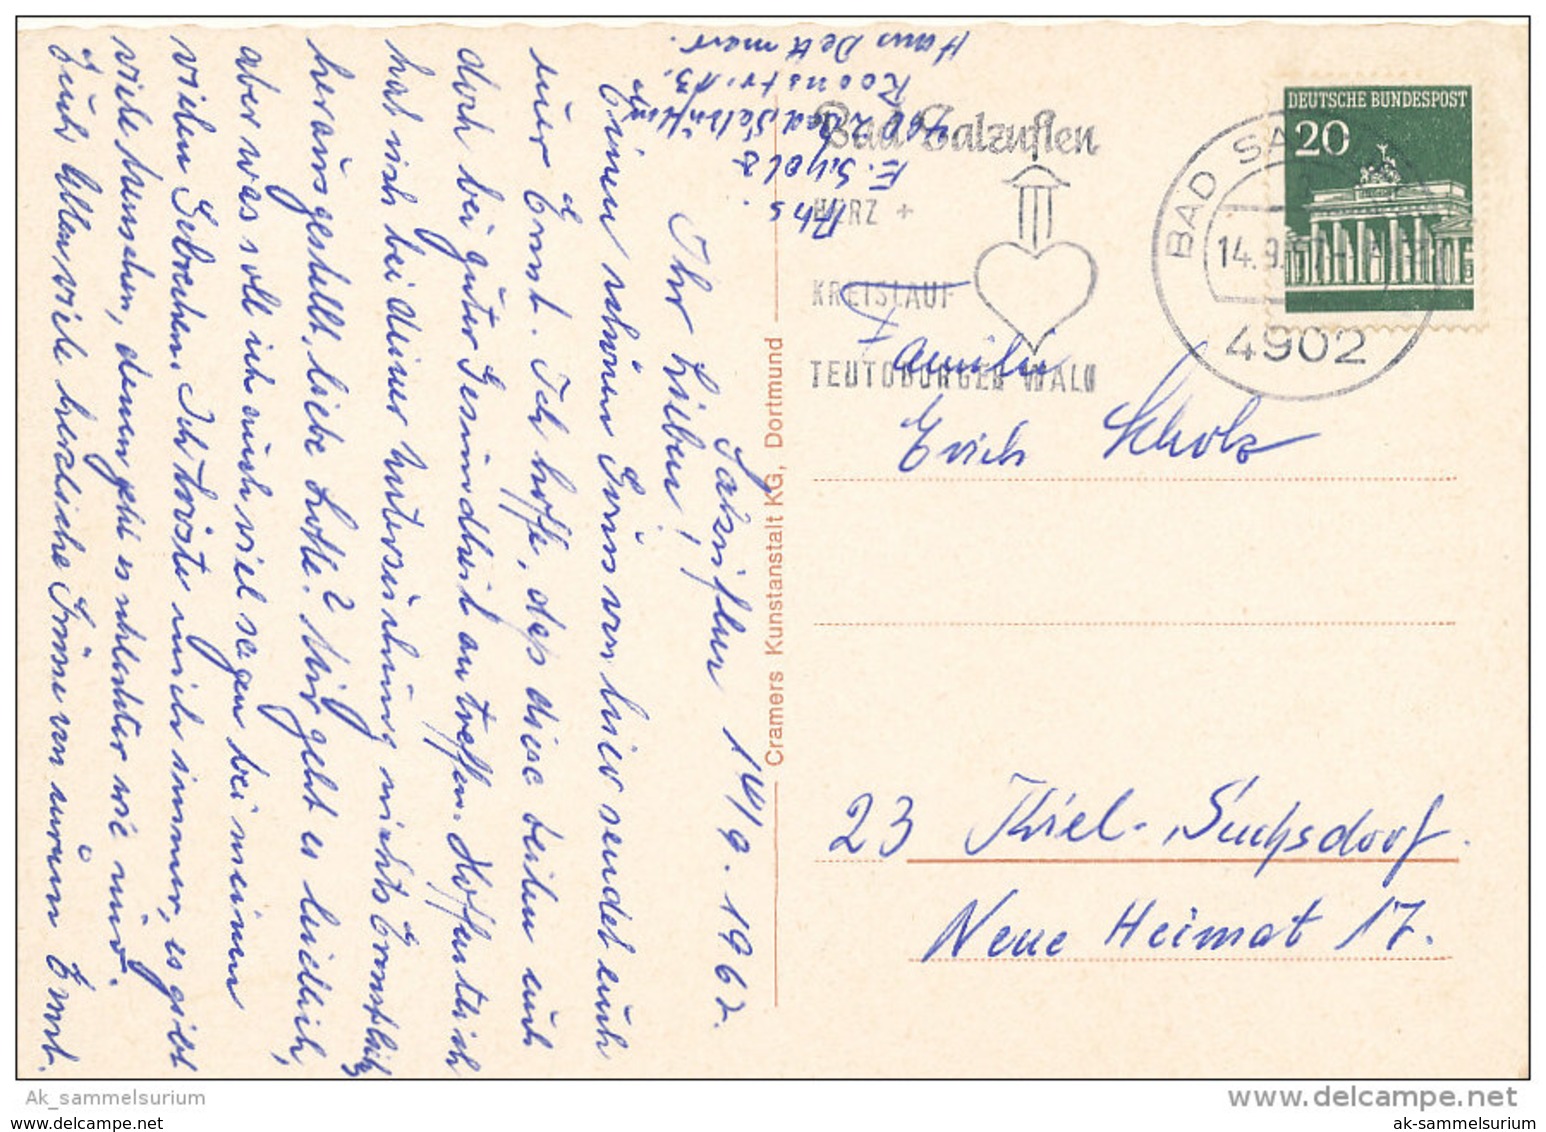 Salzuflen 14/9. 1967.
Ihr Lieben!
Einen schönen Gruß von hier sendet euch
euer Ernst. Ich hoffe, daß diese Zeilen euch
doch bei guter Gesundheit antreffen. Hoffentlich
hat sich bei deiner Untersuchung nichts Ernstlich
herausgestellt, liebe Lotte? Mir geht es leidlich,
aber was soll ich auch viel sagen bei meinen
vielen Gebrechen. Ich tröste mich immer, es gibt
viele Menschen, denen geht es schlechter wie mir.
Euch Allen viele herzliche Grüße von eurem Ernst.
Abs.
E. Scholz
4902 Bad Salzuflen
Roonstr. 13.
Haus Dettmer.
Cramers Kunstanstalt KG, Dortmund
Bad Salzuflen
HERZ +
KREISLAUF
TEUTOBURGER WALD
BAD SA
14.9.67
4902
DEUTSCHE BUNDESPOST
20
Familie
Erich Scholz
23 Kiel-Suchsdorf.
Neue Heimat 17.
Ak_sammelsurium
www.delcampe.net
www.ak-sammelsurium.de
ak-sammelsurium